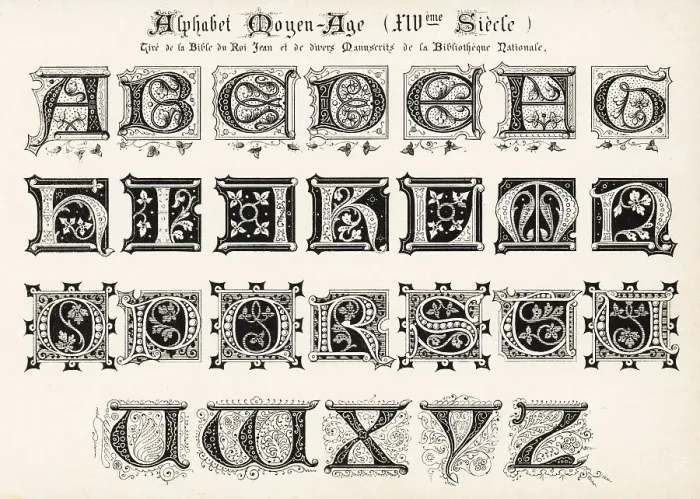 Alphabet Moyen-Age (XIVème Siècle)
Tiré de la Bible du Roi Jean et de divers Manuscrits de la Bibliothèque Nationale.
A B C D E F G
H I J K L M N
O P Q R S T U
V W X Y Z